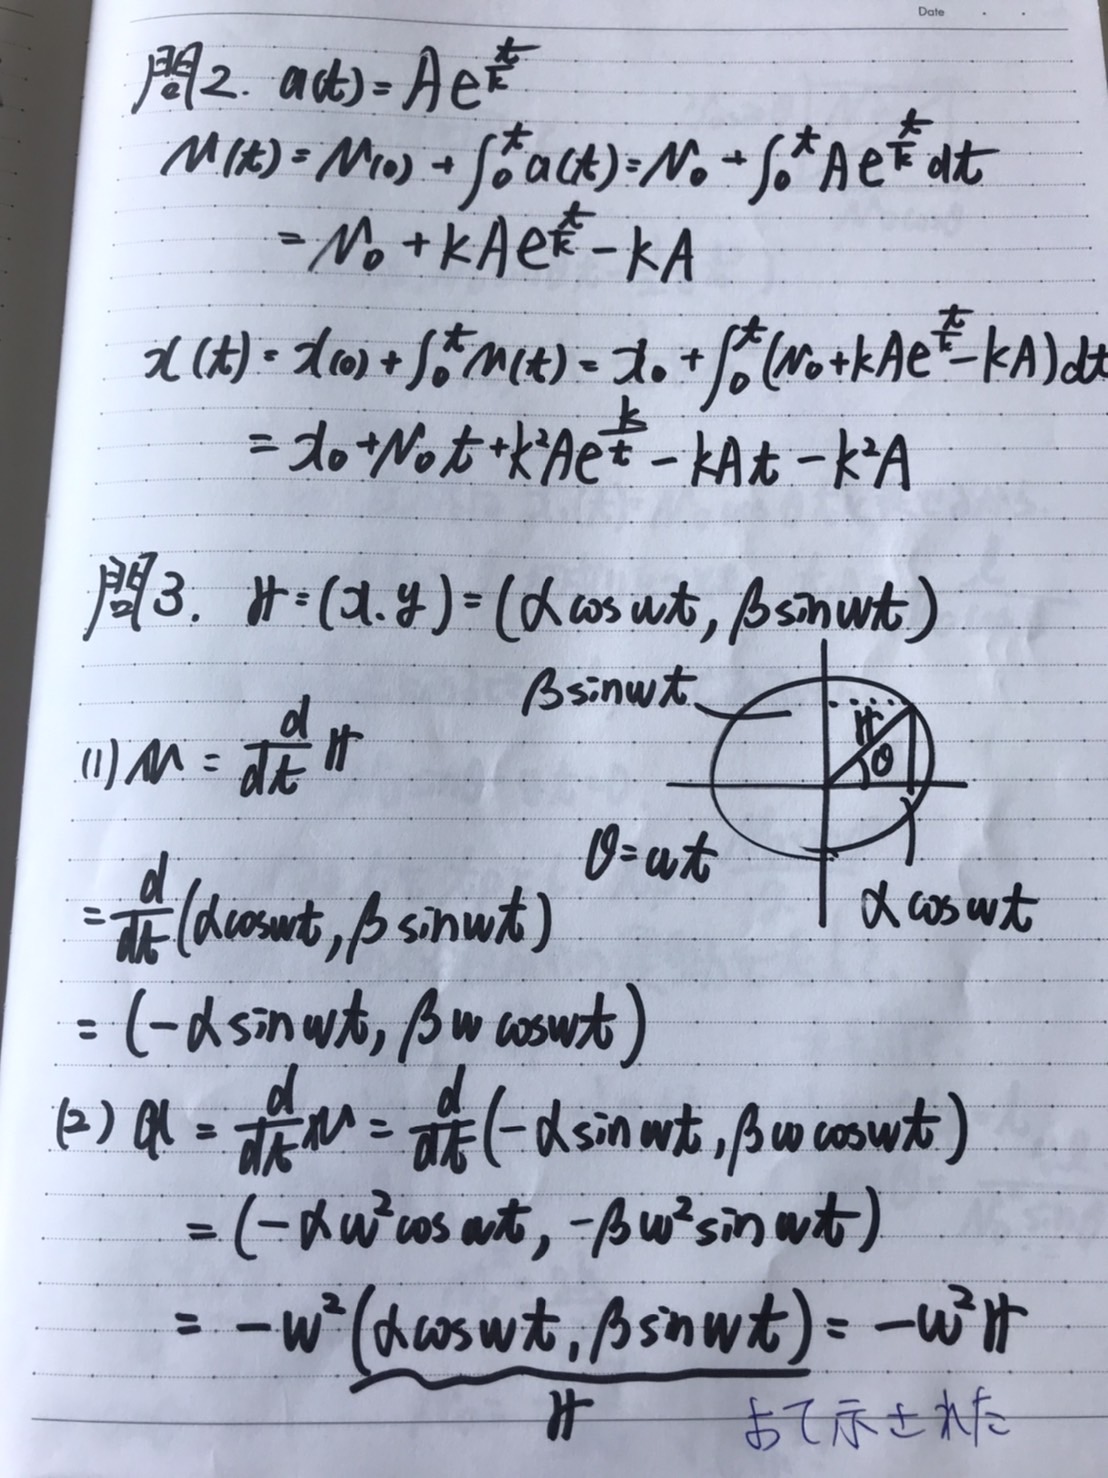 Date
問2. a(t)=Ae^{t/k}
v(t)=v(0)+∫₀ᵗa(t)=v₀+∫₀ᵗAe^{t/k}dt
=v₀+kAe^{t/k}-kA
x(t)=x(0)+∫₀ᵗv(t)=x₀+∫₀ᵗ(v₀+kAe^{t/k}-kA)dt
=x₀+v₀t+k²Ae^{k/t}-kAt-k²A
問3. 𝕣=(x.y)=(αcosωt, βsinωt)
βsinωt
𝕣
θ
(1) 𝕧=d/dt 𝕣
θ=ωt
αcosωt
=d/dt(αcosωt, βsinωt)
=(-αsinωt, βωcosωt)
(2) 𝕒=d/dt 𝕧=d/dt(-αsinωt, βωcosωt)
=(-αω²cosωt, -βω²sinωt)
=-ω²(αcosωt, βsinωt)=-ω²𝕣
𝕣
よて示された